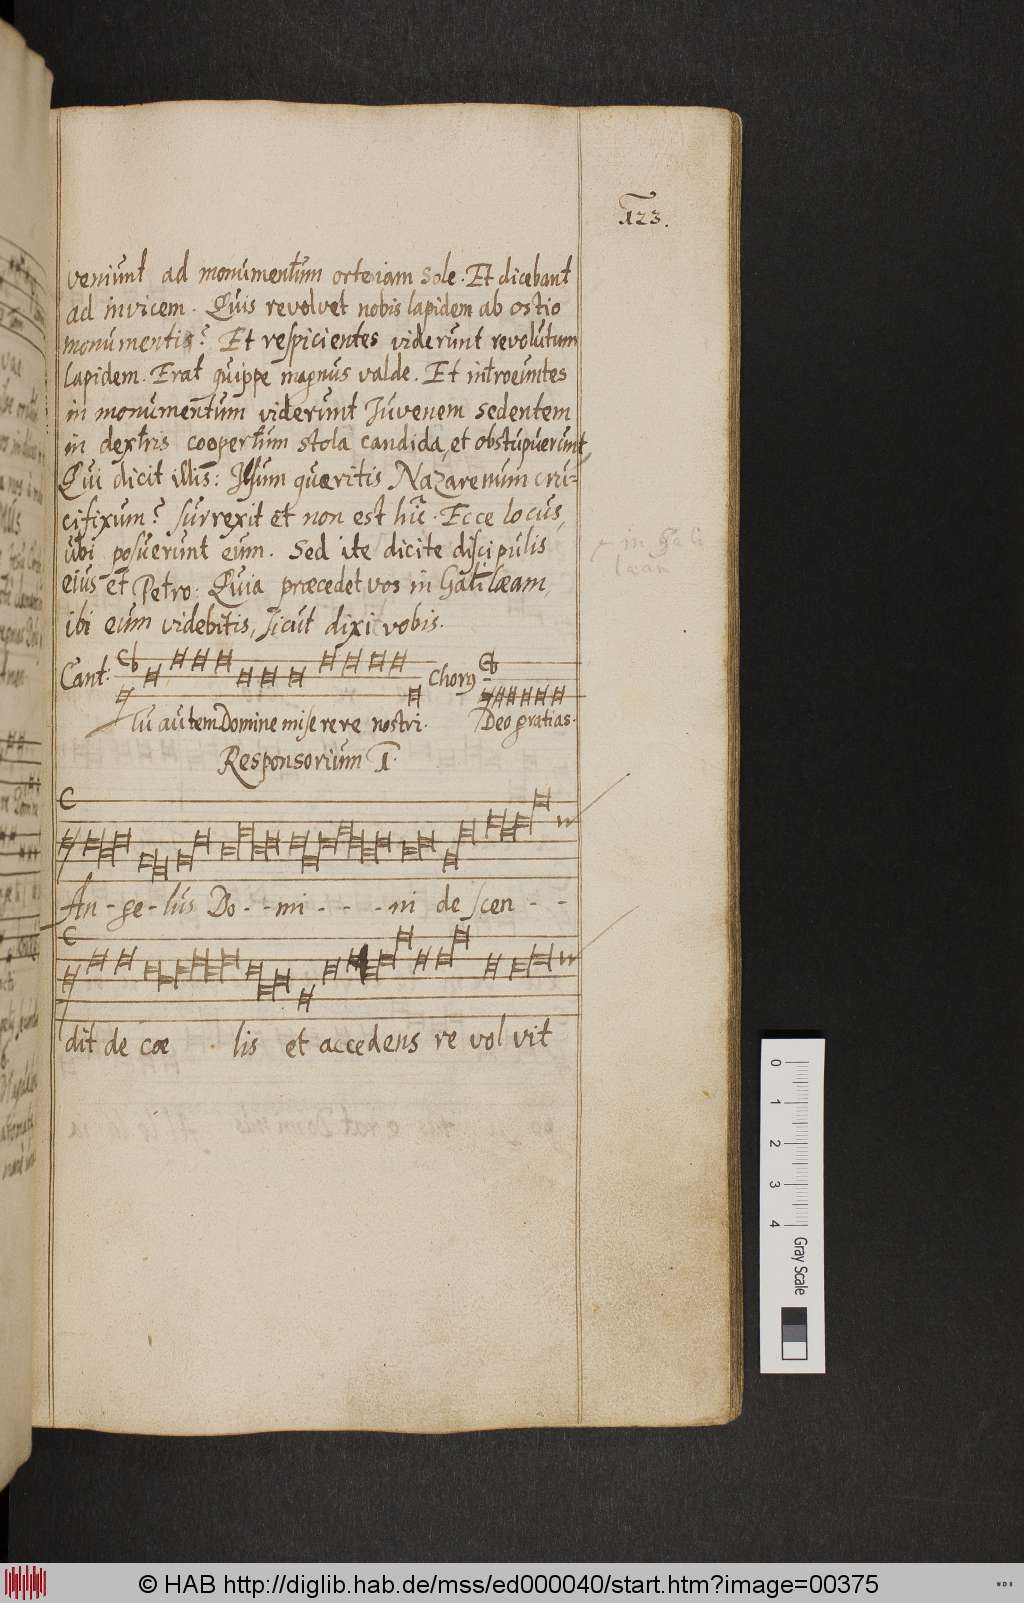 123.
veniunt ad monumentum orto iam Sole. Et dicebant
ad invicem. Quis revolvet nobis lapidem ab ostio
monumentis? Et respicientes viderunt revolutum
lapidem. Erat quippe magnus valde. Et introeuntes
in monumentum viderunt Juvenem sedentem
in dextris coopertum stola candida, et obstupuerunt,
Qui dicit illis: Jesum quæritis Nazarenum cru-
cifixum? surrexit et non est hic. Ecce locus,
ubi posuerunt eum. Sed ite dicite discipulis
eius et Petro: Quia præcedet vos in Galilæam,
in Gali
læam
ibi eum videbitis, sicut dixi vobis.
Cant: Chorus
Tu autem Domine miserere nostri. Deo gratias.
Responsorium 1.
An - ge - lus Do - - mi - - - ni de scen - -
dit de cœ . lis et accedens re vol vit
0 1 2 3 4 Gray Scale
© HAB http://diglib.hab.de/mss/ed000040/start.htm?image=00375